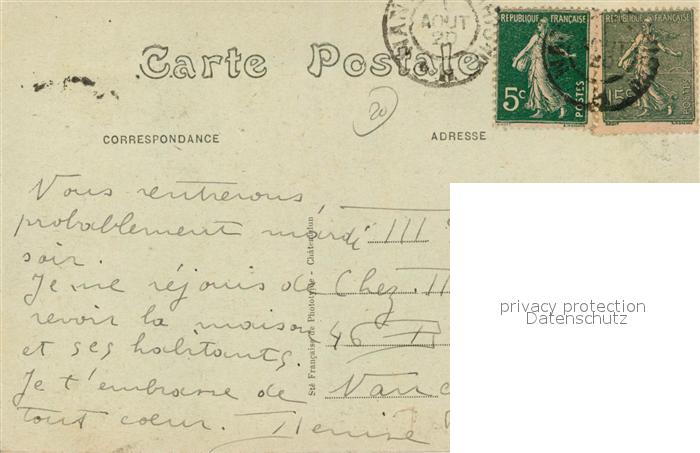 AOUT
20
RÉPUBLIQUE FRANÇAISE
5c
POSTES
RÉPUBLIQUE FRANÇAISE
15c
Carte Postale
20
CORRESPONDANCE
ADRESSE
Vous rentrerons
probablement mardi
soir.
Je me réjouis de
revoir la maison
et ses habitants.
Je t'embrasse de
tout coeur. Denise
Sté Française de Phototypie - Châteaudun
Chez
46
privacy protection
Datenschutz